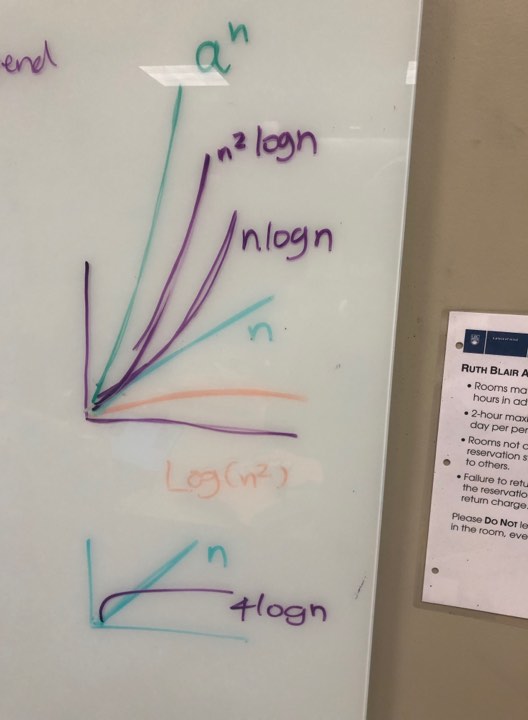 end
aⁿ
n² logn
nlogn
n
Log(n²)
n
4logn
RUTH BLAIR A
• Rooms ma
hours in ad
• 2-hour maxi
day per per
• Rooms not o
reservation s
to others.
• Failure to retu
the reservatio
return charge.
Please DO NOT le
in the room, eve